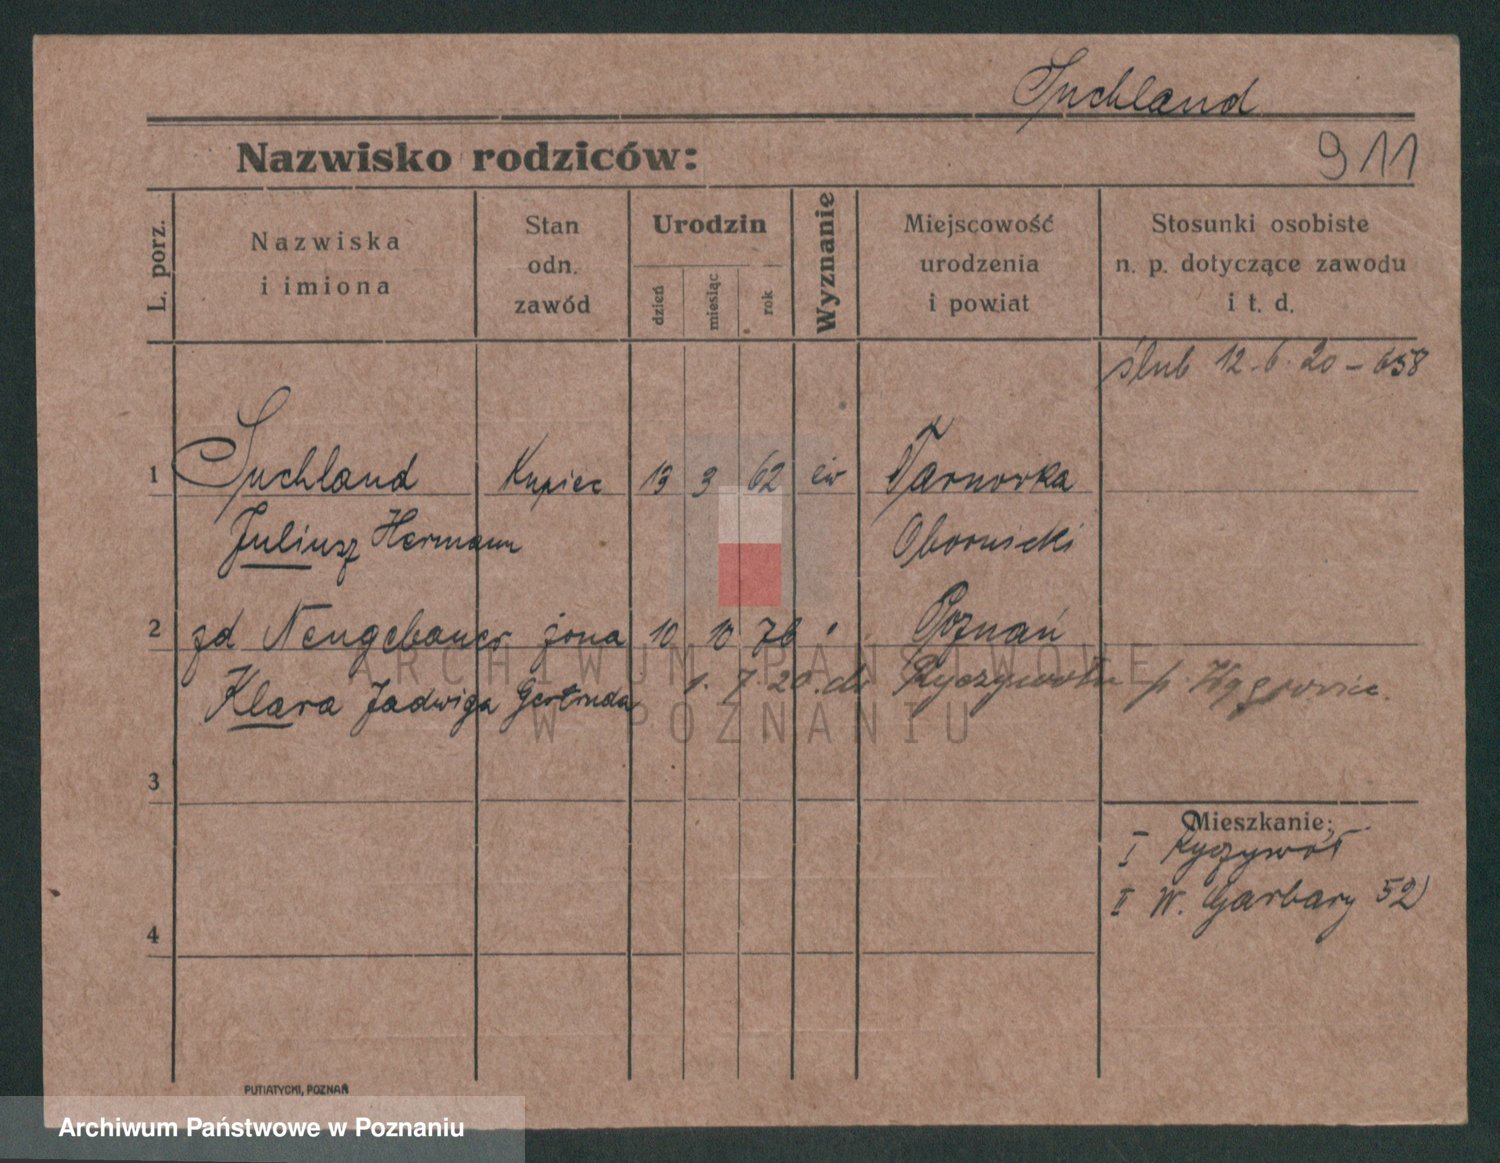 Suchland
Nazwisko rodziców:
911
L. porz.
Nazwiska
i imiona
Stan
odn.
zawód
Urodzin
dzień
miesiąc
rok
Wyznanie
Miejscowość
urodzenia
i powiat
Stosunki osobiste
n. p. dotyczące zawodu
i t. d.
ślub 12.6.20 – 658
1 Suchland Kupiec 13 3 62 ew Tarnowka
Juliusz Hermann Obornicki
2 zd Neugebauer żona 10 10 76 " Poznań
Klara Jadwiga Gertruda 1. 7. 20. do Ryczywołu p. Wągrowiec.
ARCHIWUM PAŃSTWOWE
W POZNANIU
3
Mieszkanie:
I Ryczywół
II W. Garbary 52
4
PUTIATYCKI, POZNAŃ
Archiwum Państwowe w Poznaniu